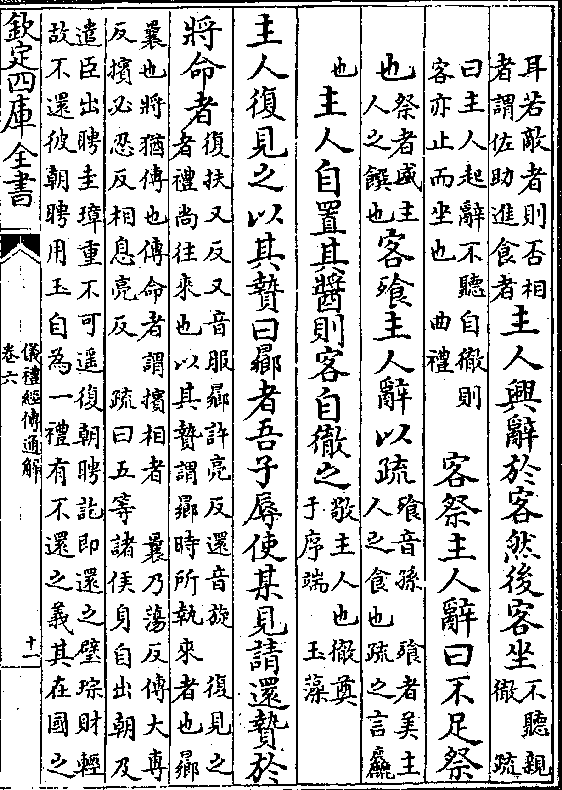 耳若敵者則否相
者謂佐助進食者
主人興辭於客然後客坐
不聽親
徹 疏
曰主人起辭不聽自徹則
客亦止而坐也 曲禮
客祭主人辭曰不足祭
也
祭者盛主
人之饌也
客飱主人辭以疏
飱音孫 飱者美主
人之食也疏之言麤
也
主人自置其醬則客自徹之
敬主人也徹奠
于序端 玉藻
主人復見之以其贄曰曏者吾子辱使某見請還贄於
將命者
復扶又反又音服曏許亮反還音旋 復見之
者禮尚往來也以其贄謂曏時所執來者也曏
曩也將猶傳也傳命者謂擯相者 曩乃蕩反傳大專
反擯必忍反相息亮反 疏曰五等諸侯身自出朝及
遣臣出聘圭璋重不可遥復朝聘訖即還之璧琮財輕
故不還彼朝聘用玉自為一禮有不還之義其在國之
欽定四庫全書
儀禮經傳通解
卷六
十一